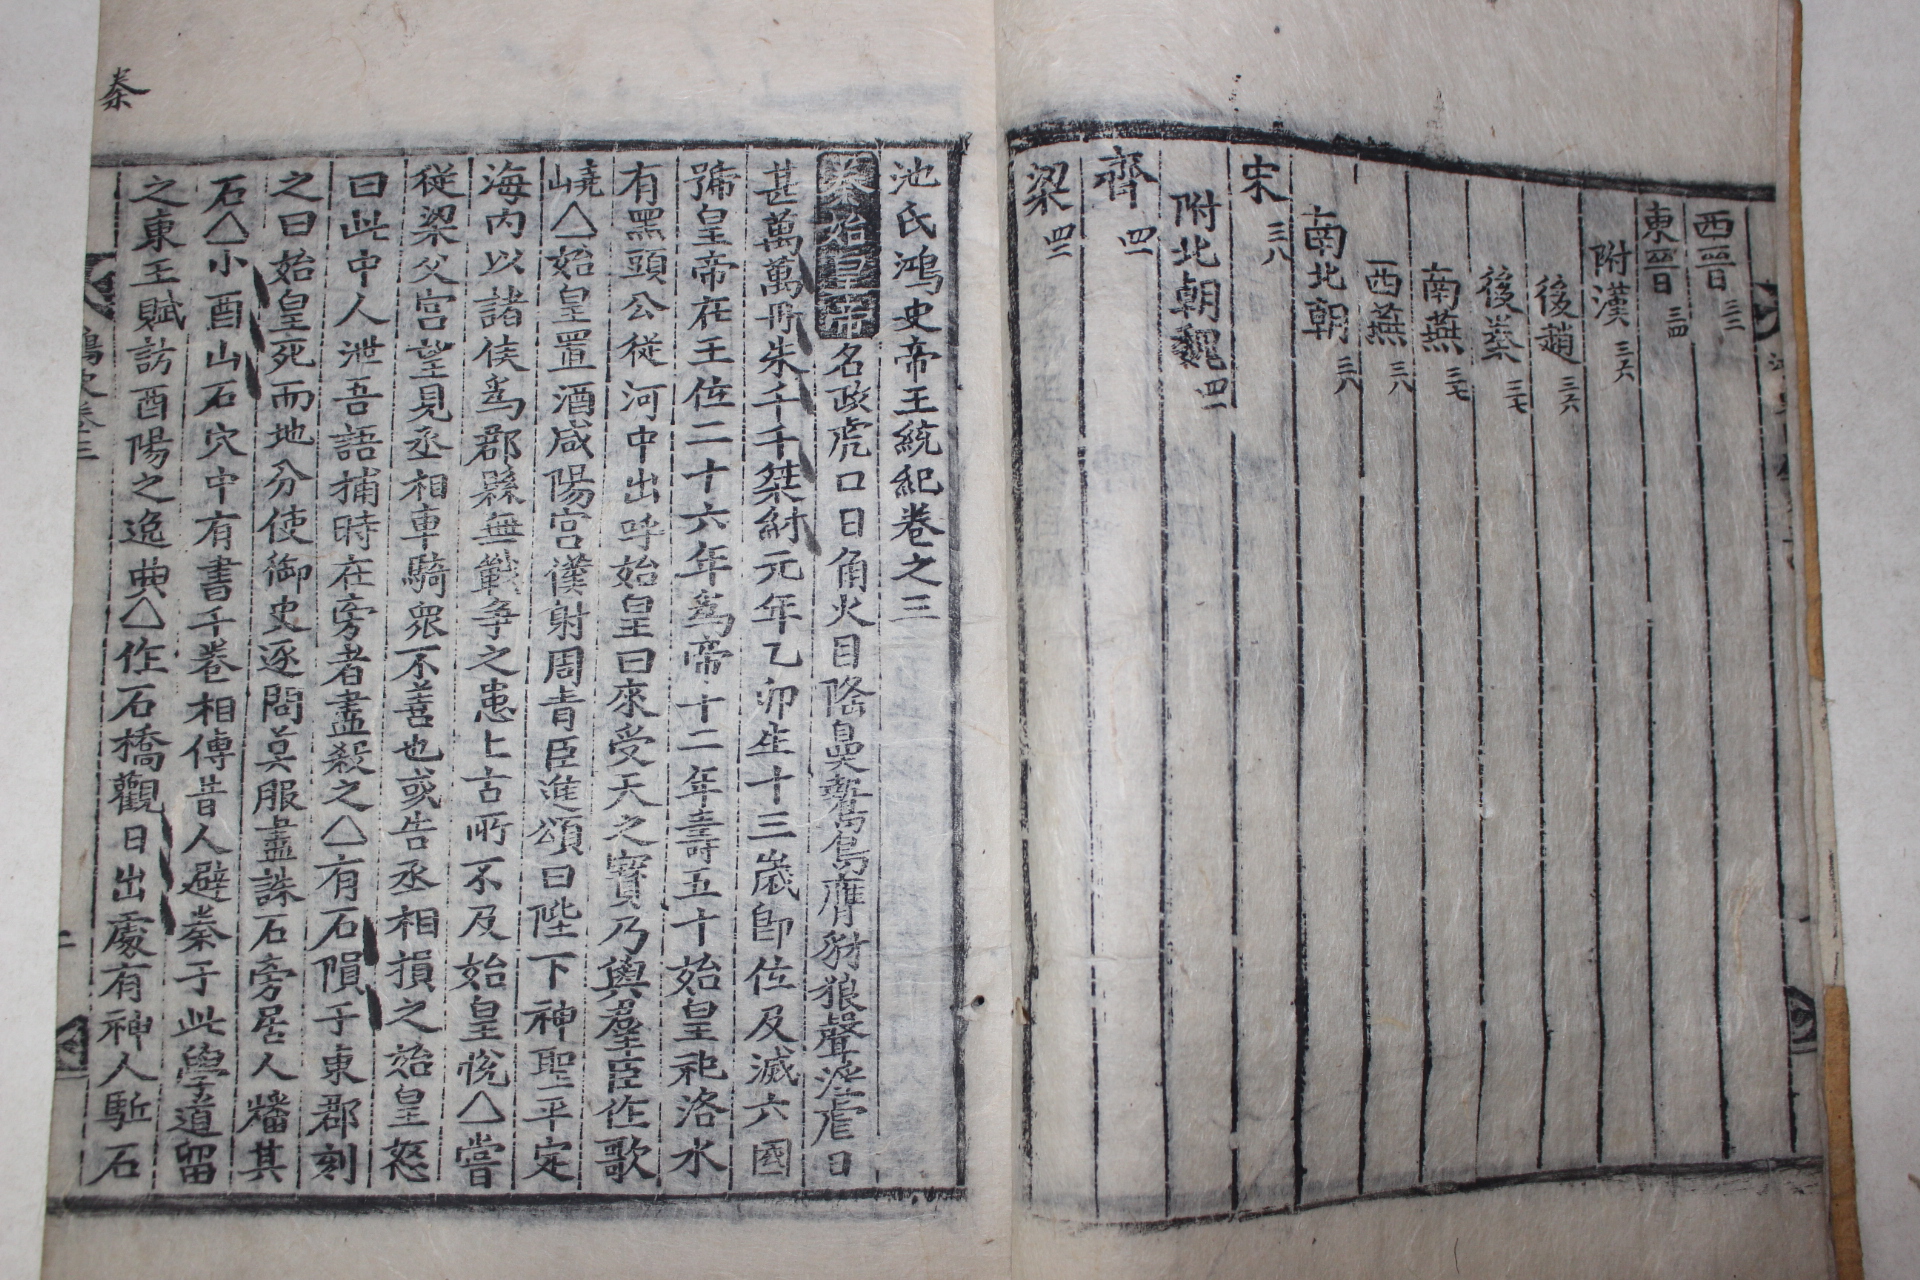 西晉 三三
東晉 三四
附漢 三六
後趙 三六
後秦 三七
南燕 三七
西燕 三八
南北朝 三八
宋 三八
附北朝魏 四一
齊 四一
梁 四二
池氏鴻史帝王統紀卷之三
秦始皇帝名政虎口日角火目隆鼻鷙鳥膺豺狼聲淫虐日
甚萬萬於朱千千桀紂元年乙卯生十三歲卽位及滅六國
號皇帝在王位二十六年爲帝十二年壽五十始皇祀洛水
有黑頭公從河中出呼始皇曰來受天之寶乃與羣臣作歌
嶢△始皇置酒咸陽宮僕射周青臣進頌曰陛下神聖平定
海內以諸侯爲郡縣無戰爭之患上古所不及始皇悅△嘗
從梁父宮望見丞相車騎衆不善也或告丞相損之始皇怒
曰此中人泄吾語捕時在旁者盡殺之△有石隕于東郡刻
之曰始皇死而地分使御史逐問莫服盡誅石旁居人燔其
石△小酉山石穴中有書千卷相傳昔人避秦于此學道留
之東王賦訪酉陽之逸典△作石橋觀日出處有神人駈石
鴻史卷三
秦